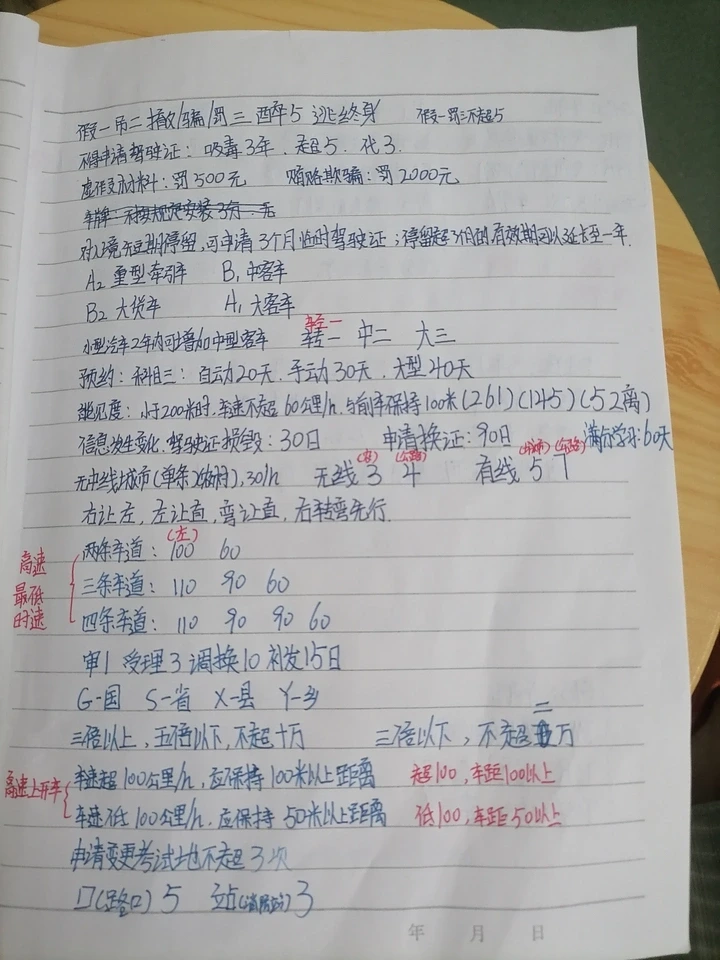 假一吊二撤/骗/罚三 醉5 逃终身 假一罚三不超5
不得申请驾驶证：吸毒3年．超5．代3．
虚作材料：罚500元 贿赂欺骗：罚2000元
车牌 不按规定安装3分
对入境短期停留，可申请3个月临时驾驶证；停留超3个月的有效期可以延长至一年．
A2 重型牵引车 B1 中客车
B2 大货车 A1 大客车
轻一
小型汽车2年内可增加中型客车 转一 中二 大三
预约：科目三：自动20天．手动30天．大型40天
能见度：小于200米时，车速不超60公里/h，与前车保持100米(261)(145)(52离)
信息发生变化．驾驶证损毁：30日 申请换证：90日 满分学习：60天
无中线城市(单条)，30/h 无线3 4 有线5 7
右让左，左让直，弯让直，右转弯先行．
(左)
两条车道：100 60
高速最低时速 三条车道：110 90 60
四条车道：110 90 90 60
审1 受理3 调换10 补发15日
G-国 S-省 X-县 Y-乡
三倍以上，五倍以下，不超十万 三倍以下，不超二万
高速上开车 车速超100公里/h，应保持100米以上距离 超100，车距100以上
车速低100公里/h．应保持50米以上距离 低100，车距50以上
申请变更考试地不超3次
口(路口)5 站(消防站)3
年 月 日